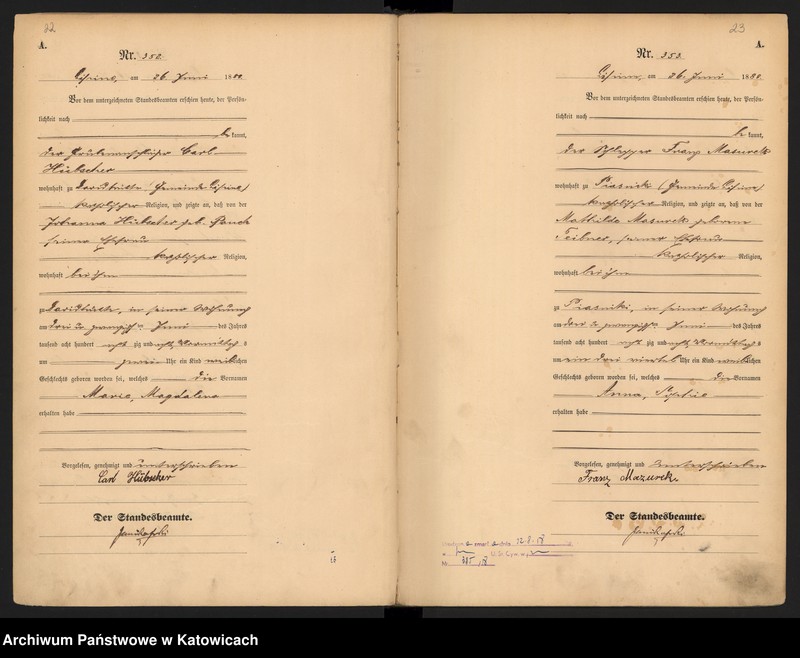 22
A.
Nr. 352.
am 26 Juni 1880.
Vor dem unterzeichneten Standesbeamten erschien heute, der Persön-
lichkeit nach
be kannt,
der Carl
Hübscher
wohnhaft zu (Gemeinde Lipine)
katholischer Religion, und zeigte an, daß von der
Johanna Hübscher geb.
seiner Ehefrau
katholischer Religion,
wohnhaft bei ihm
zu in seiner Wohnung
am drei u. zwanzigsten Juni des Jahres
tausend acht hundert acht zig und Vormittags
um zwei Uhr ein Kind weiblichen
Geschlechts geboren worden sei, welches die Vornamen
Marie, Magdalena
erhalten habe
Vorgelesen, genehmigt und unterschrieben
Carl Hübscher
Der Standesbeamte.
23
A.
Nr. 353.
am 26. Juni 1880.
Vor dem unterzeichneten Standesbeamten erschien heute, der Persön-
lichkeit nach
be kannt,
der Schlepper Franz Mazurek
wohnhaft zu Piasniki (Gemeinde Lipine)
katholischer Religion, und zeigte an, daß von der
Mathilde Mazurek geborene
seiner Ehefrau
katholischer Religion,
wohnhaft bei ihm
zu Piasniki, in seiner Wohnung
am drei u. zwanzigsten Juni des Jahres
tausend acht hundert acht zig und Vormittags
um ein drei viertel Uhr ein Kind weiblichen
Geschlechts geboren worden sei, welches die Vornamen
Anna, Sophie
erhalten habe
Vorgelesen, genehmigt und unterschrieben
Franz Mazurek
Der Standesbeamte.
12.8.
Archiwum Państwowe w Katowicach